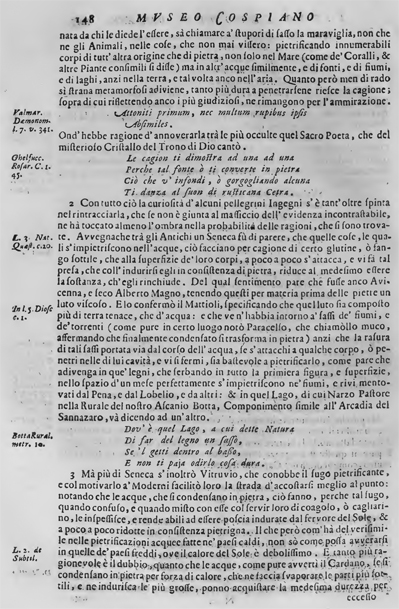 148 MVSEO COSPIANO
nata da chi le diede l'essere, sà chiamare a' stupori di sasso la maraviglia, non che
ne gli Animali, nelle cose, che non mai vissero: pietrificando innumerabili
corpi di tutt'altra origine che di pietra, non solo nel Mare (come de' Coralli, &
altre Piante consimili si disse) ma in altr'acque similmente, e di fonti, e di fiumi,
e di laghi, anzi nella terra, e tal volta anco nell'aria. Quanto però men di rado
sì strana metamorfosi adiviene, tanto più dura a penetrarsene riesce la cagione;
sopra di cui riflettendo anco i più giudiziosi, ne rimangono per l'ammirazione.
Valmar.
Dæmonom.
l. 7. v. 341.
Attoniti primum, nec multum rupibus ipsis
Absimiles.
Ond'hebbe ragione d'annoverarla trà le più occulte quel Sacro Poeta, che del
misterioso Cristallo del Trono di Dio cantò.
Ghelfucc.
Rosar. C. 1.
45.
Le cagion ti dimostra ad una ad una
Perche tal fonte ò ti converte in pietra
Ciò che v'infondi, ò gorgogliando alcuna
Ti danza al suon di rusticana Cetra.
2 Con tutto ciò la curiosità d'alcuni pellegrini Ingegni s'è tant'oltre spinta
nel rintracciarla, che se non è giunta al massiccio dell'evidenza incontrastabile,
ne hà toccato almeno l'ombra nella probabilità delle ragioni, che si sono trova-
L. 3. Nat.
Quæst. c. 20.
te. Avvegnache trà gli Antichi un Seneca fù di parere, che quelle cose, le qua-
li s'impietriscono nell'acque, ciò facciano per cagione di certo glutine, ò fan-
go sottile, che alla superfizie de' loro corpi, a poco a poco s'attacca, e vi fà tal
presa, che coll'indurirsi egli in consistenza di pietra, riduce al medesimo essere
la sostanza, ch'egli rinchiude. Del qual sentimento pate che fusse anco Avi-
cenna, e seco Alberto Magno, tenendo questi per materia prima delle pietre un
In l. 5. Diosc
c. 1.
luto viscoso. Elo confermò il Mattioli, specificando che quel luto sia composto
più di terra tenace, che d'acqua: e che ven'habbia intorno a' sassi de' fiumi, e
de' torrenti (come pure in certo luogo notò Paracelso, che chiamòllo muco,
affermando che finalmente condensato si trasforma in pietra) anzi che la rasura
di tali sassi portata via dal corso dell'acqua, se s'attacchi a qualche corpo, ò pe-
netri nelle di lui cavità, e vi si fermi, sia bastevole a pietrificarlo, come pare che
adivenga in que' legni, che serbando in tutto la primiera figura, e superfizie,
nello spazio d'un mese perfettamente s'impietriscono ne' fiumi, e rivi mento-
vati dal Pena, e dal Lobelio, e da altri: & in quel Lago, di cui Narzo Pastore
nella Rurale del nostro Ascanio Botta, Componimento simile all'Arcadia del
Sannazaro, và dicendo ad un'altro.
Botta Rural.
metr. 10.
Dov'è quel Lago, a cui dette Natura
Di far del legno un sasso,
Se 'l getti dentro al basso,
E non ti paja odirlo cosa dura.
3 Mà più di Seneca s'inoltrò Vitruvio, che conobbe il sugo pietrificante,
e col motivarlo a' Moderni facilitò loro la strada d'accostarsi meglio al punto:
notando che le acque, che si condensano in pietra, ciò fanno, perche tal sugo,
quando confuso, e quando misto con esse col servir loro di coagolo, ò cagliari-
no, le inspessisce, e rende abili ad essere poscia indurate dal fervore del Sole, &
a poco a poco ridotte in consistenza pietrigna. Il che però com'hà del verisimi-
le nelle pietrificazioni acquee fatte ne' paesi caldi, non sò come possa avverarsi
L. 2. de
Subtil.
in quelle de' paesi freddi, ove il calore del Sole è debolissimo. E tanto più ra-
gionevole è il dubbio, quanto che le acque, come pure avvertì il Cardano, se si
condensano in pietra per forza di calore, che ne faccia svaporare le parti più sot-
tili, e ne indurisca le più grosse, ponno acquistare la medesima durezza per
eccesso